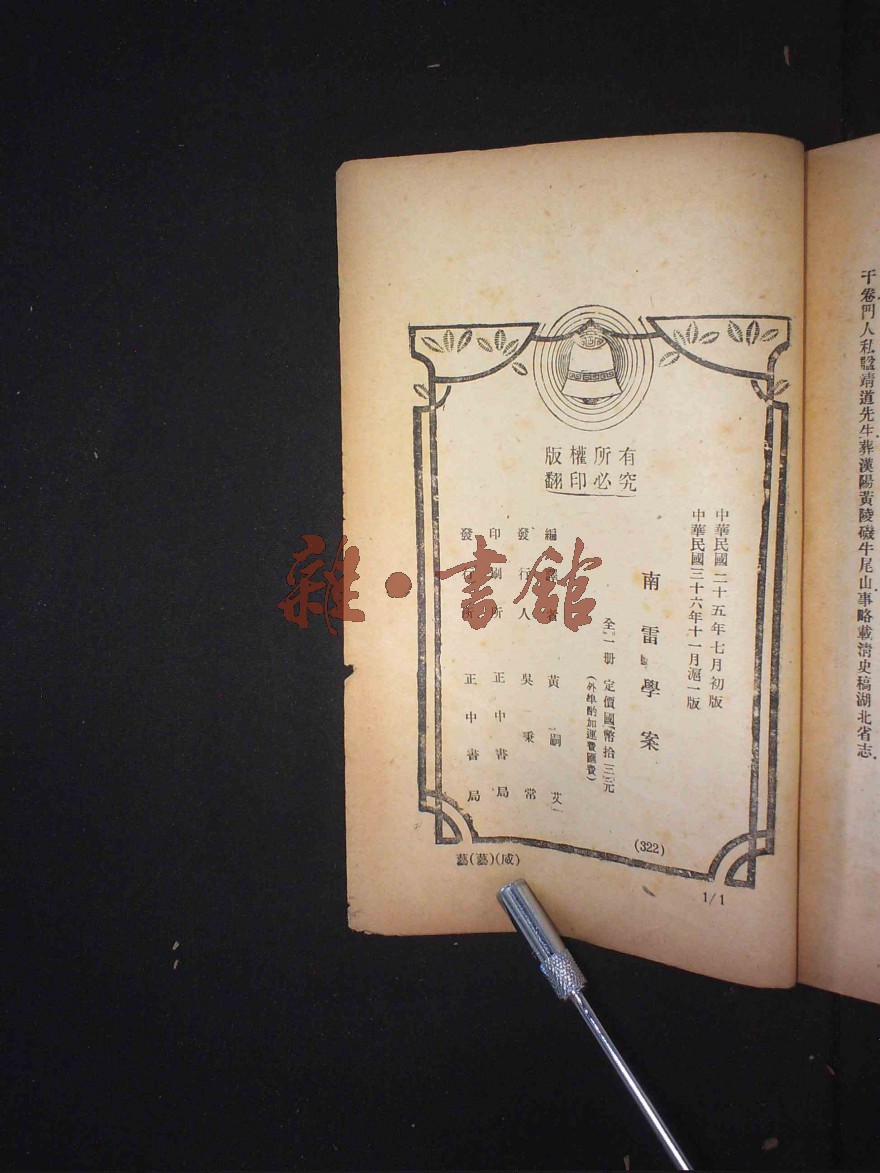 千卷門人私諡靖道先生葬漢陽黃陵磯牛尾山事略載清史稿湖北省志
版權所有
翻印必究
中華民國二十五年七月初版
中華民國三十六年十一月滬一版
南雷學案
全一册 定價國幣拾三元
(外埠酌加運費匯費)
編著者 黃嗣艾
發行人 吳秉常
印刷所 正中書局
發行所 正中書局
(322)
藝(藝)(咸)
1/1
雜·書館